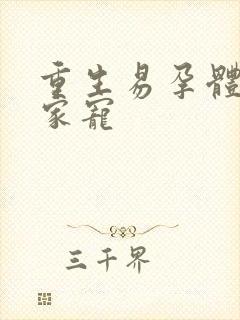 重生易孕體
家寵
三千界